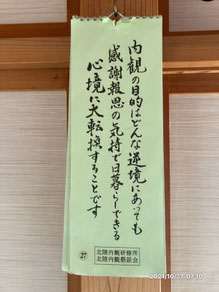 内観の目的はどんな逆境にあっても
感謝報恩の気持で日暮らしできる
心境に大転換することです
27
北陸内観研修所
北陸内観懇話会
2021/10/27 07:10